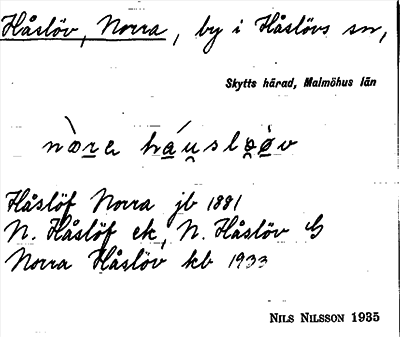 Håslöv, Norra, by i Håslövs sn,
Skytts härad, Malmöhus län
Håslöf Norra jb 1881
N. Håslöf ek, N. Håslöv G
Norra Håslöv kb 1933
NILS NILSSON 1935